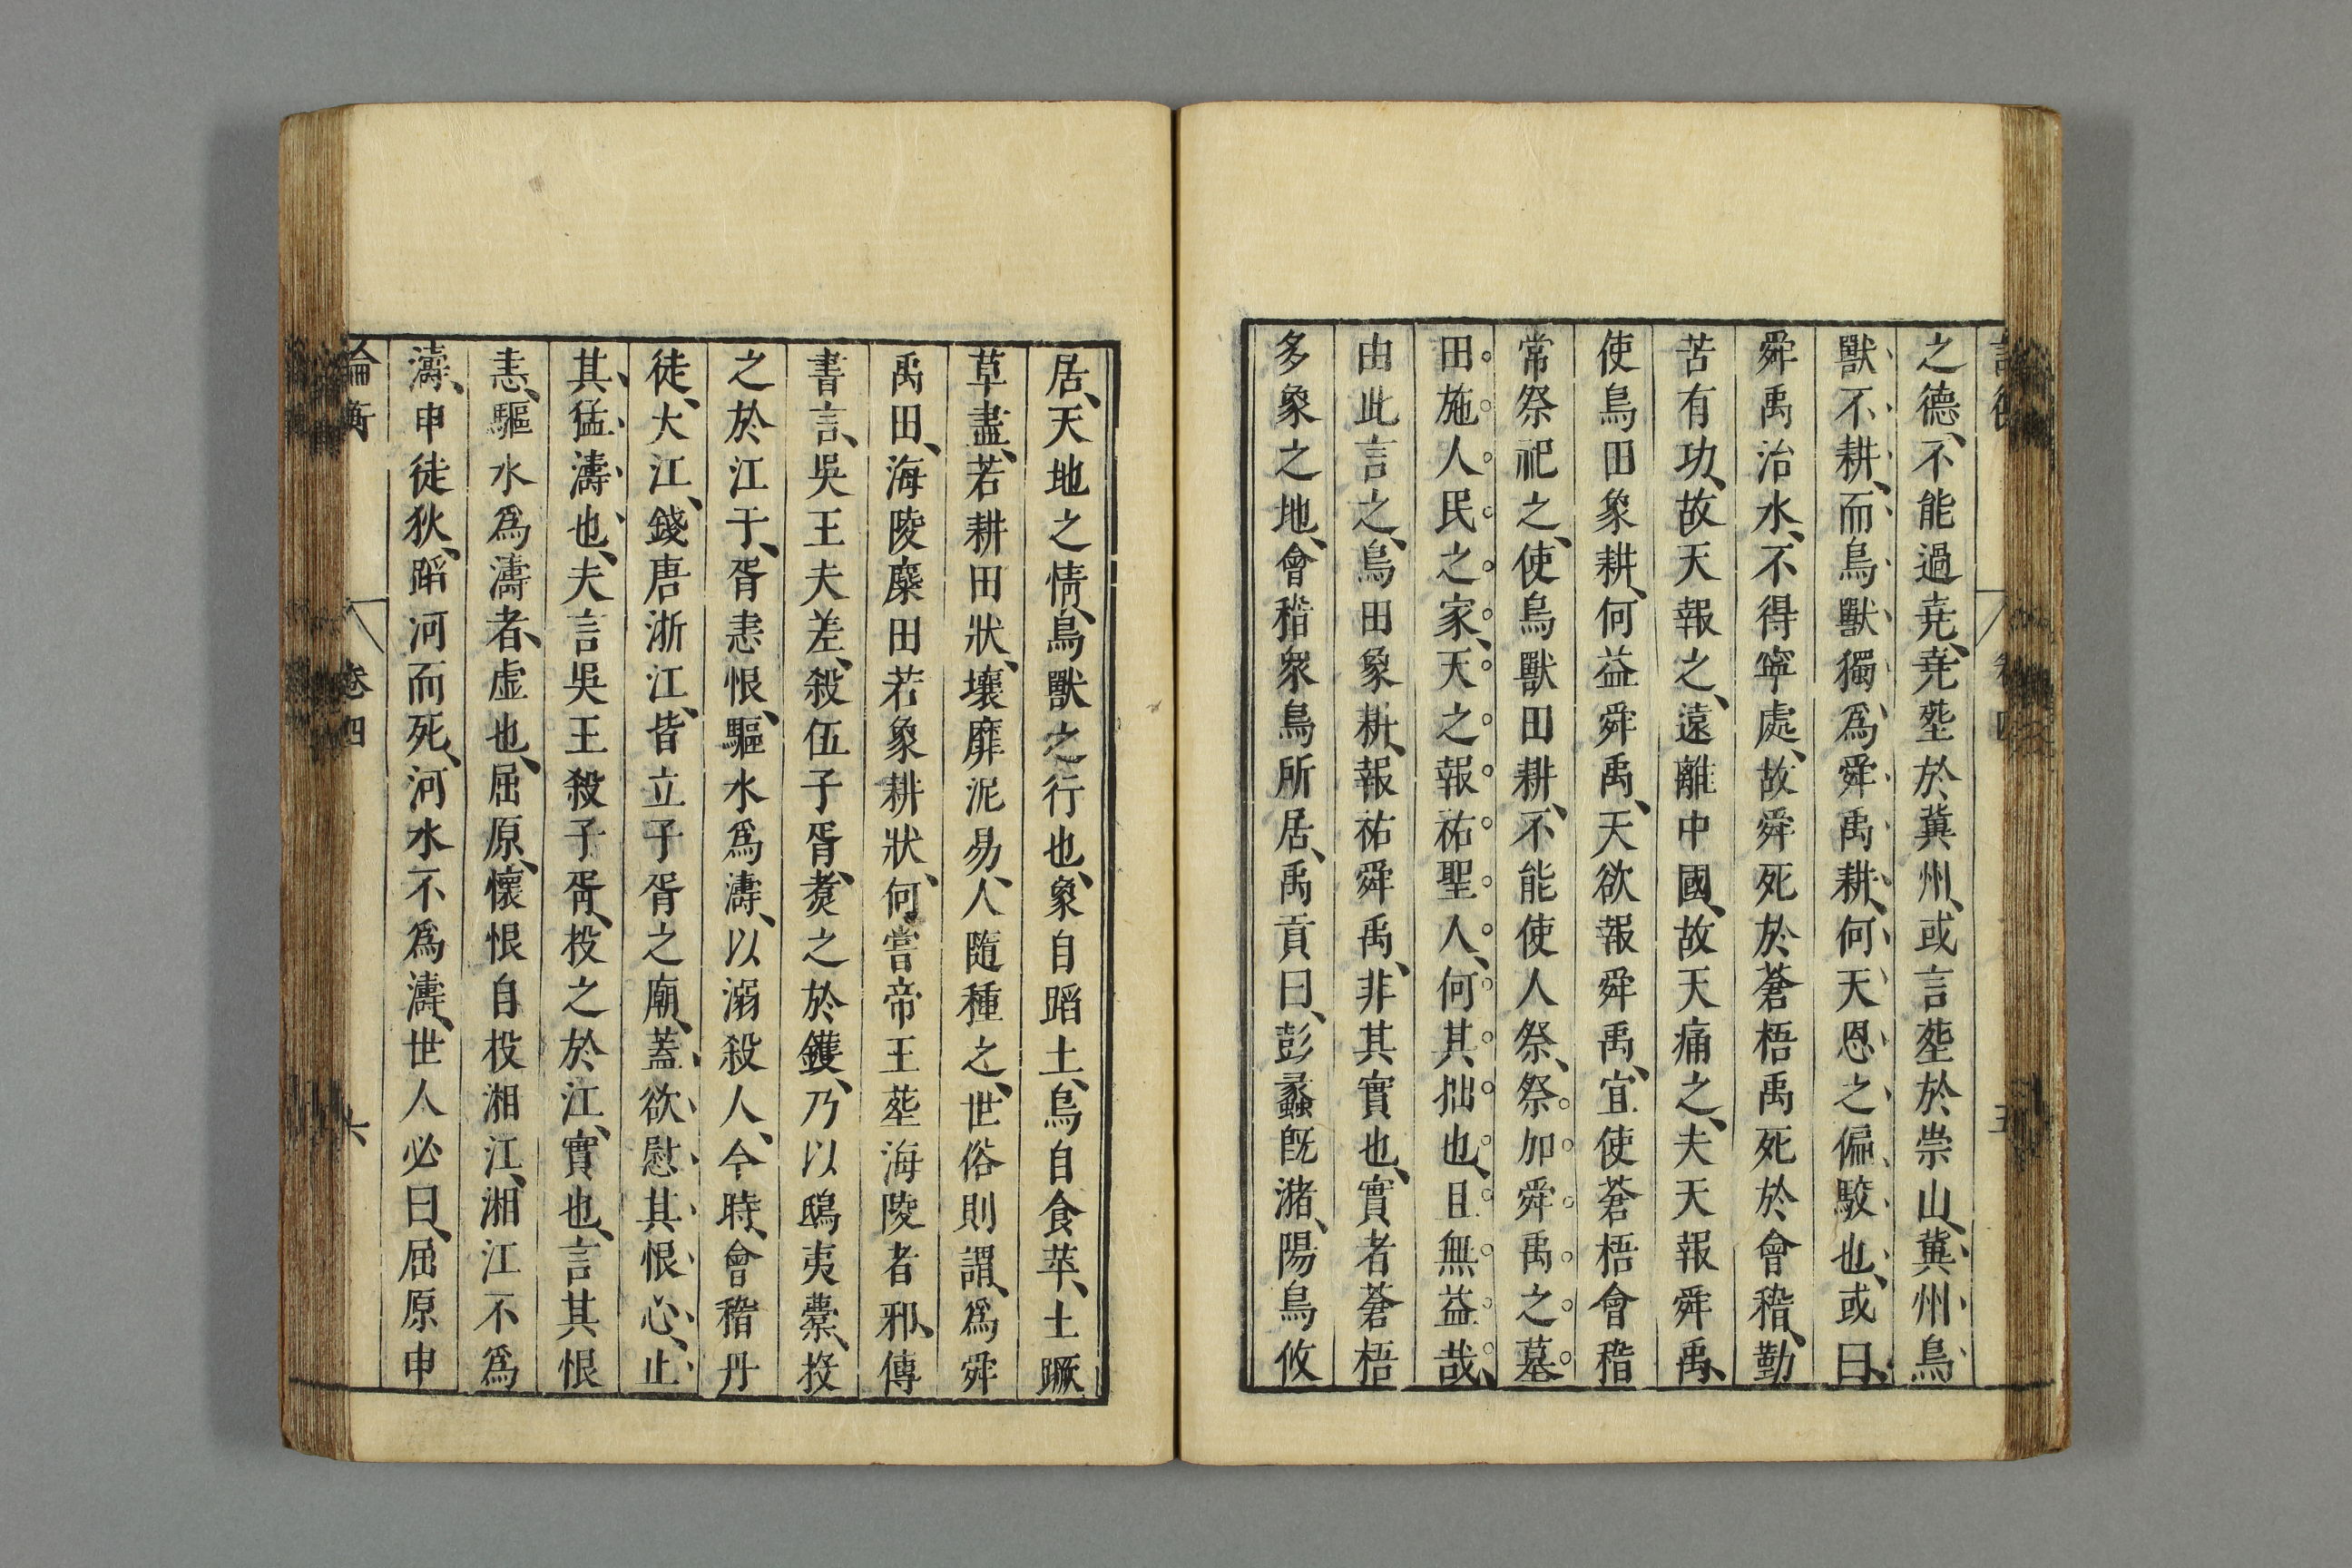 之德、不能過堯、堯塟於冀州、或言塟於崇山、冀州鳥
獸不耕、而鳥獸獨爲舜禹耕、何天恩之偏駮也、或曰、
舜禹治水、不得寧處、故舜死於蒼梧禹死於會稽、勤
苦有功、故天報之、遠離中國、故天痛之、夫天報舜禹、
使鳥田象耕、何益舜禹、天欲報舜禹、宜使蒼梧會稽
常祭祀之、使鳥獸田耕、不能使人祭、祭加舜禹之墓
田施人民之家、天之報祐聖人、何其拙也、且無益哉、
由此言之、鳥田象耕、報祐舜禹、非其實也、實者蒼梧
多象之地、會稽衆鳥所居、禹貢曰、彭蠡旣瀦、陽鳥攸
居、天地之情、鳥獸之行也、象自蹈土、鳥自食苹、土蹶
草盡、若耕田狀、壤靡泥易、人隨種之、世俗則謂、爲舜
禹田、海陵麋田若象耕狀、何嘗帝王塟海陵者邪、傳
書言、吳王夫差、殺伍子胥、煑之於鑊、乃以鴟夷橐、投
之於江、子胥恚恨、驅水爲濤、以溺殺人、今時、會稽丹
徒、大江、錢唐浙江、皆立子胥之廟、蓋欲慰其恨心、止
其猛濤也、夫言吳王殺子胥、投之於江、實也、言其恨
恚、驅水爲濤者、虛也、屈原、懷恨自投湘江、湘江不爲
濤、申徒狄、蹈河而死、河水不爲濤、世人必曰、屈原申
論衡 卷四 六